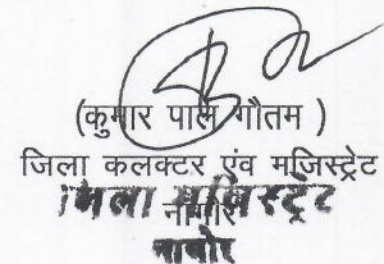 (कुमार पाल गौतम )
जिला कलक्टर एंव मजिस्ट्रेट
जिला मजिस्ट्रेट
नागौर
नागौर